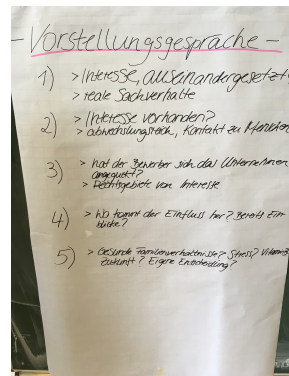 - Vorstellungsgespräche -
1) > Interesse, auseinandergesetzt
> reale Sachverhalte
2) > Interesse vorhanden?
> abwechslungsreich, Kontakt zu Menschen
3) > hat der Bewerber sich das Unternehmen
angeguckt?
> Rechtsgebiete von Interesse
4) > Wo kommt der Einfluss her? Bereits Ein-
blicke?
5) > Gesunde Familienverhältnisse? Stress?
Zukunft? Eigene Entscheidung?